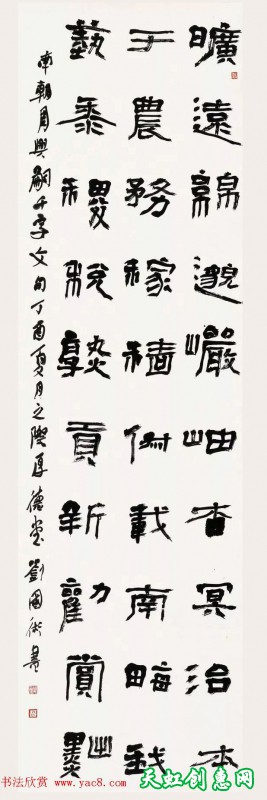 曠遠綿邈巖岫杳冥治本
于農務稼穡俶載南畝我
藝黍稷稅熟貢新勸賞黜
南朝周興嗣千字文句丁酉夏月之際厚德堂劉國術書
书法欣赏 www.yac8.com
天虹创意网